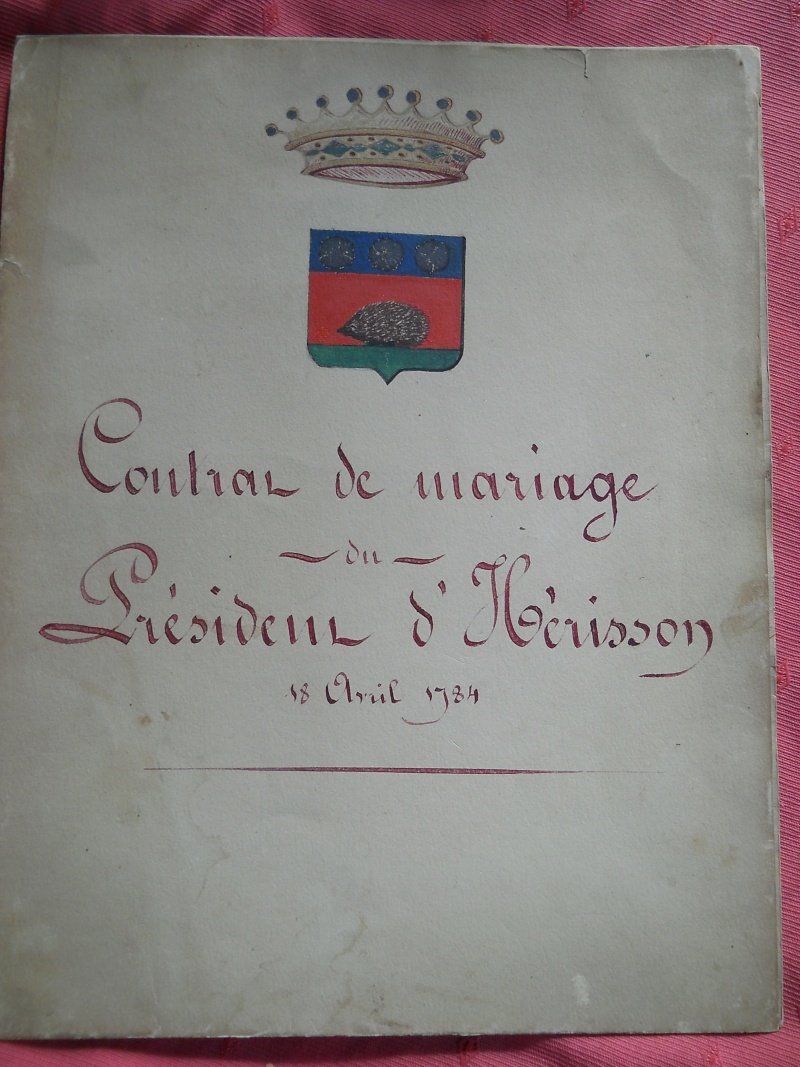 Contrat de mariage
du
Président d'Hérisson
18 Avril 1784